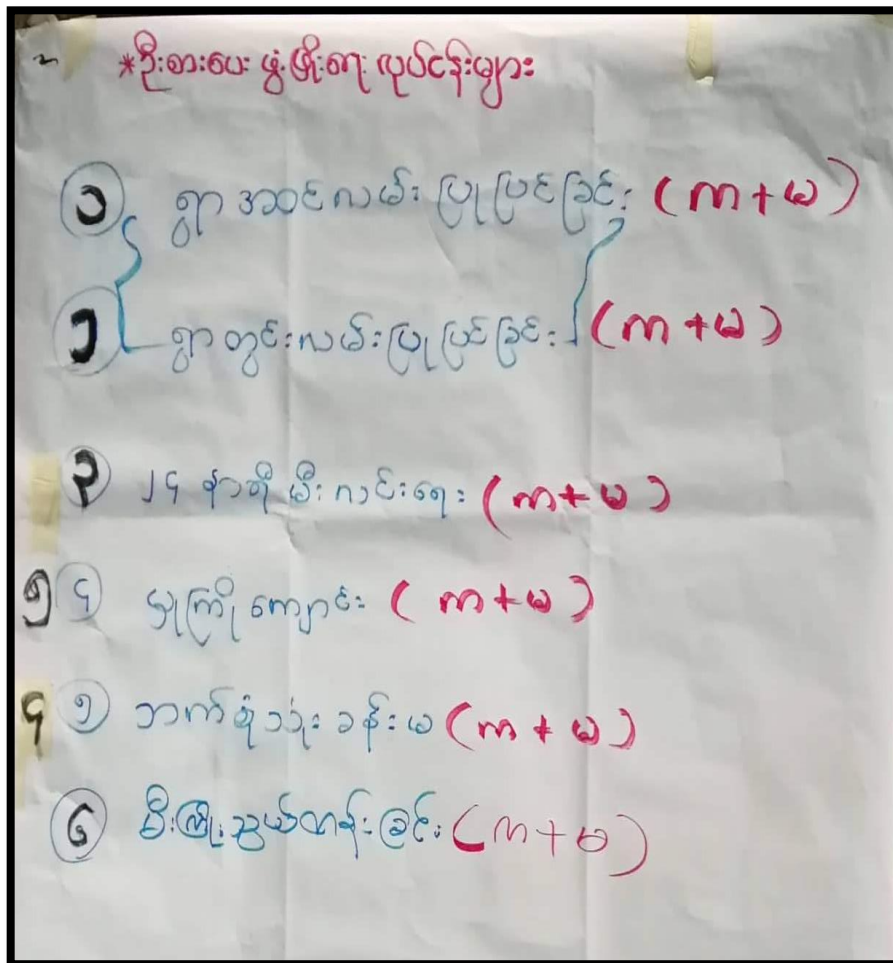 *ဦးစားပေး ဖွံ့ဖြိုးရေး လုပ်ငန်းများ
၁ ရွာအဆင်လမ်းပြုပြင်ခြင်း (ကာ+မ)
၁ ရွာတွင်းလမ်းပြုပြင်ခြင်း (ကာ+မ)
၃ ၂၄ နာရီ မီးလင်းရေး (ကာ+မ)
၅ ၄ မူကြိုကျောင်း (ကာ+မ)
၄ ၅ ဘက်စုံသုံးခန်းမ (ကာ+မ)
၆ မီးကြိုးသွယ်တန်းခြင်း (ကာ+မ)